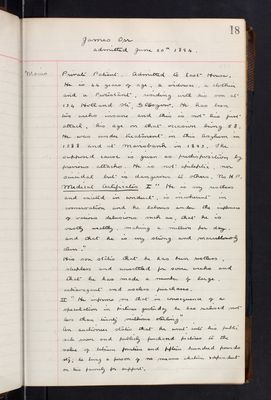 18
James Orr
admitted June 20th 1894.
Mania
Private Patient. Admitted to East House.
He is 64 years of age, a widower, a clothier
and a Parishioner, residing with his son at
134 Holland St Glasgow. He has been
six weeks insane and this is not his first
attack, his age on that occasion being 58.
He was under treatment in this Asylum in
1888 and at Morningside in 1893. The
supposed cause is given as predisposition by
previous attacks. He is not epileptic, nor
suicidal but is dangerous to others. No H.P.
Medical Certificates I " He is very restless
and excited in conduct, is incoherent in
conversation and he labours under the influence
of various delusions such as, that he is
vastly wealthy, making a million per day
and that he is very strong and marvellously
clever."
His son states that he has been restless,
sleepless and unsettled for some weeks and
that he has made a number of large,
extravagant and useless purchases.
II " He informs me that in consequence of a
speculation in pictures yesterday he has realised not
less than ninety millions sterling."
An auctioneer states that he went into his public
sale room and publicly purchased pictures to the
value of between fourteen and fifteen hundred pounds
stg; he being a person of no means whatever dependent
on his family for support.